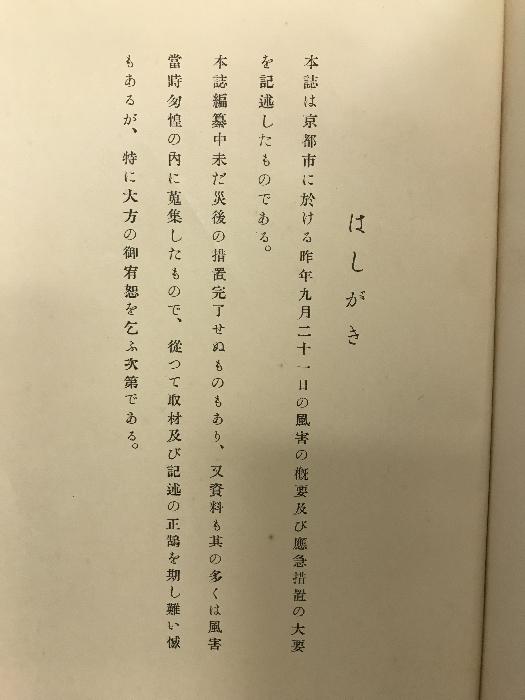 はしがき
本誌は京都市に於ける昨年九月二十一日の風害の槪要及び應急措置の大要
を記述したものである。
本誌編纂中未だ災後の措置完了せぬものもあり、又資料も其の多くは風害
當時匆惶の內に蒐集したもので、從つて取材及び記述の正鵠を期し難い憾
もあるが、特に大方の御宥恕を乞ふ次第である。